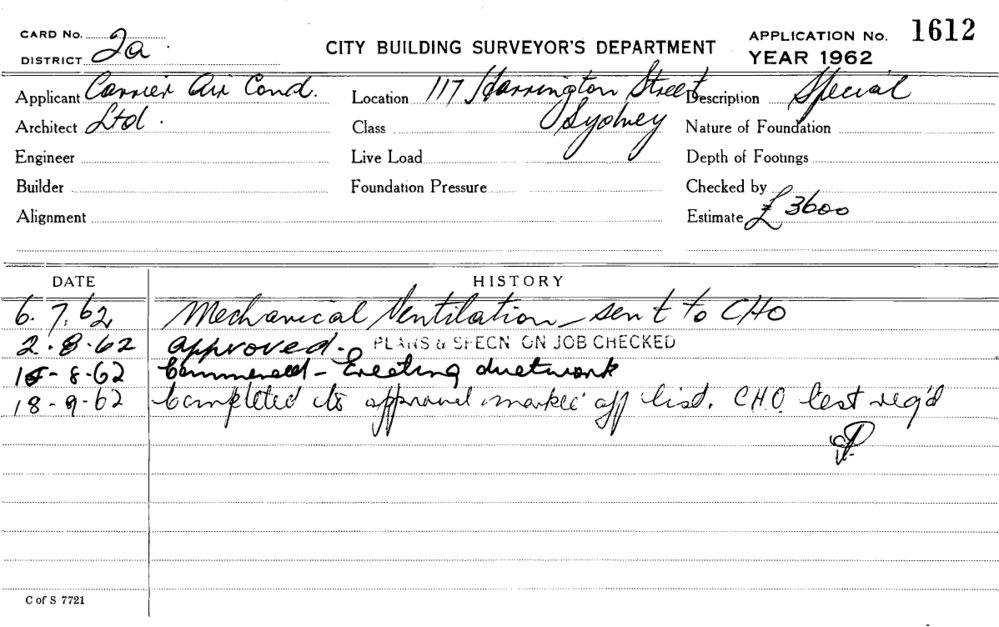 CARD No. 2a.
DISTRICT
CITY BUILDING SURVEYOR'S DEPARTMENT
APPLICATION No. 1612
YEAR 1962
Applicant Carrier Air Cond. Location 117 Harrington Street Description Special
Architect Ltd. Class Sydney Nature of Foundation
Engineer Live Load Depth of Footings
Builder Foundation Pressure Checked by
Alignment Estimate £ 3600
DATE HISTORY
6. 7. 62 Mechanical Ventilation - sent to CHO
2. 8. 62 approved - PLANS & SPECN ON JOB CHECKED
15 - 8 - 62 Commenced - Erecting ductwork
18 - 9 - 62 Completed to approval marked off list. CHO test req'd
C of S 7721